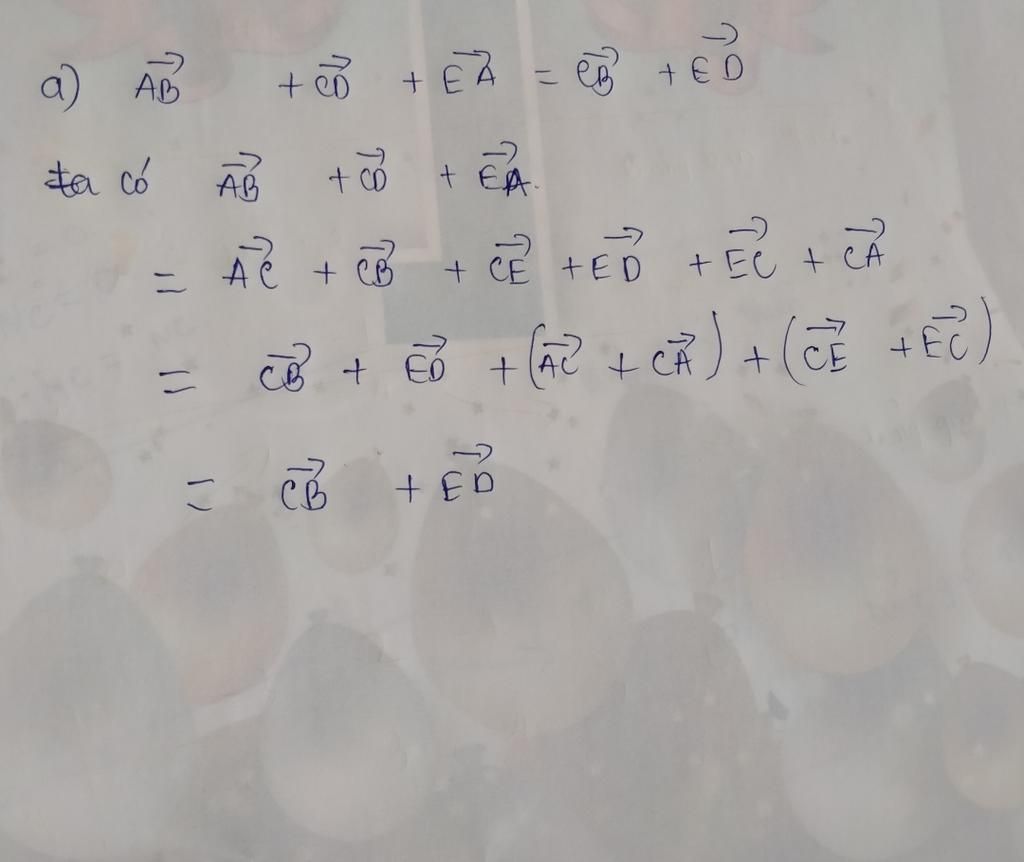 a) $\overrightarrow{AB} + \overrightarrow{CD} + \overrightarrow{EA} = \overrightarrow{CB} + \overrightarrow{ED}$
ta có $\overrightarrow{AB} + \overrightarrow{CD} + \overrightarrow{EA}$.
$= \overrightarrow{AC} + \overrightarrow{CB} + \overrightarrow{CE} + \overrightarrow{ED} + \overrightarrow{EC} + \overrightarrow{CA}$
$= \overrightarrow{CB} + \overrightarrow{ED} + (\overrightarrow{AC} + \overrightarrow{CA}) + (\overrightarrow{CE} + \overrightarrow{EC})$
$= \overrightarrow{CB} + \overrightarrow{ED}$